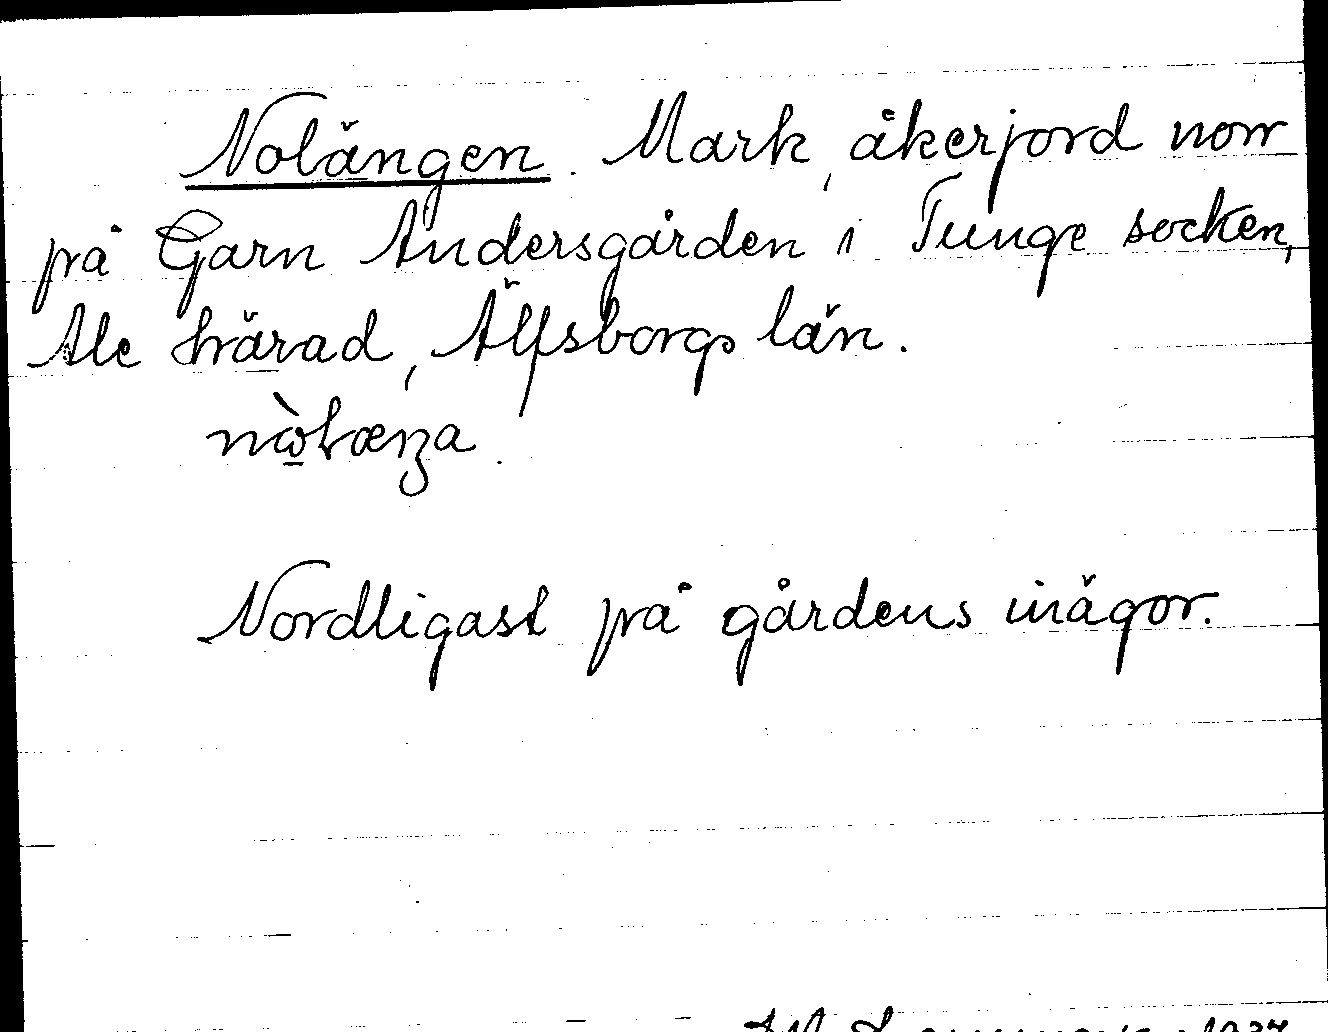 Nolängen. Mark, åkerjord norr
på Garn Andersgården i Tunge socken,
Ale härad, Älfsborgs län.
Nordligast på gårdens inägor.